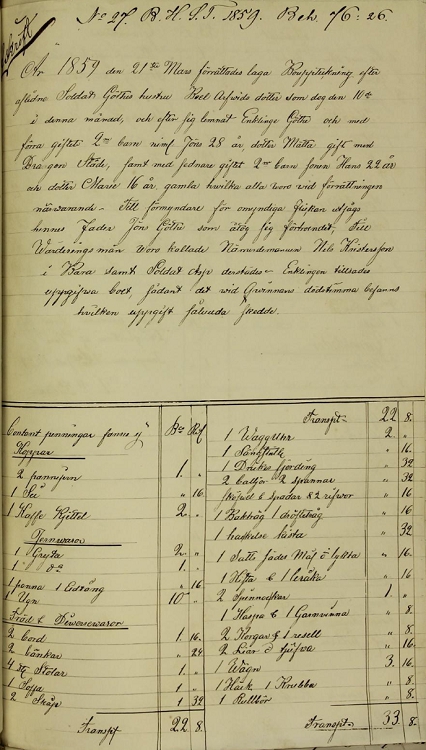 No 27. B. H. S. T. 1859. Beh. 76: 26.
År 1859 den 21de Mars förrättades laga Bouppteckning efter
aflidne Soldat Göthes hustru Boel Arfvids dotter som dog den 10de
i denna månad, och efter sig lemnat Enklinge Göthe och med
förra giftets 2ne barn niml Jöns 28 år, dotter Mätta gift med
Dragon Ståde, samt med sednare giftet 2ne barn sonen Hans 22 år
och dotter Marie 16 år, gamla hvilka alla woro vid förrättningen
närwarande - Till förmyndare för omyndiga flickan
hennes Fader Jön Göthe som åtog sig förtroendet, Till
Wärderings män woro kallade Nämndemannen Nels Kristersson
i Rara samt Soldat Asp derstädes - Enklingen tillsades
uppgifva boet, sådant det vid Qwinnans dödstimma befanns
hvilken uppgift sålunda skedde.
Contant penningar fanns ej
Koppar
2 pannor 1. "
1 " 16.
1 Kaffe Kittel 2. "
Jernwaror
1 Gryta 2. "
1 do 1. "
1 panna 1 " 16
1 Ugn 10 "
Träd &
2 bord 1. 16.
2 bänkar " 24
4 st Stolar 1. "
1 Soffa 1 "
2 Skåp 1 32
Transpt 22 8.
Transpt 22 8.
1 Wägguhr 2. "
1 " 16.
1 Dricks fjerding " 32
2 baljor 2 spannar " 32
& spadar & 2 " 16
1 Baktråg 1 " 16
1 hackelse kista " 32
1 " 16.
1 & 1 " 16
2 Spinnråckar 1. "
1 Haspa & 1 Garnvinna " 8
2 Korgar & 1 " 8.
2 Liar " 16
1 Wagn 3. 16.
1 Häck 1 Krubba " 8
1 Rullbör " 8.
Transpt 33. 8